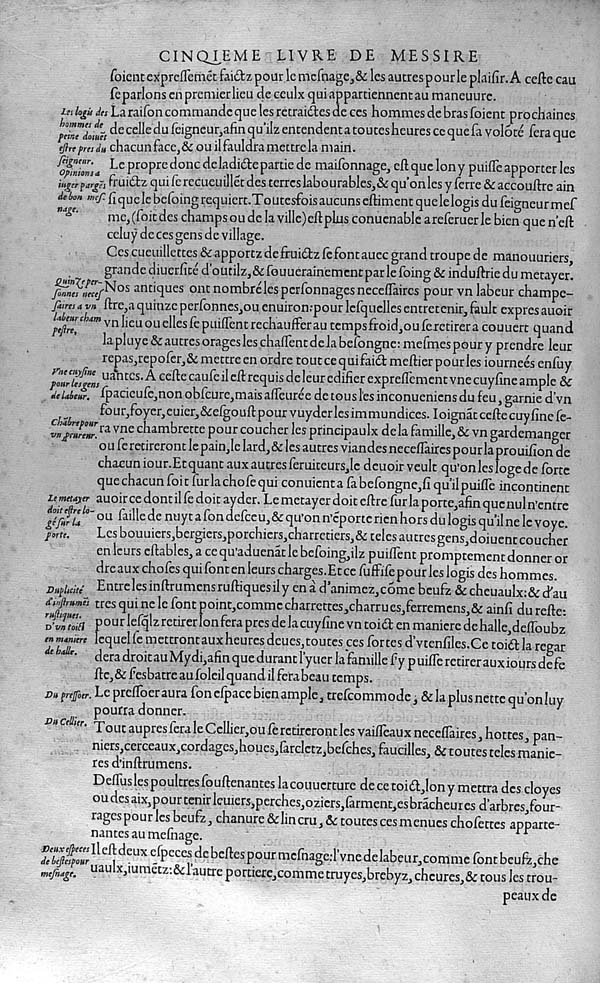 CINQIEME LIVRE DE MESSIRE
ſoient expreſſemẽt faictz pour le meſnage, & les autres pour le plaiſir. A ceſte cau
ſe parlons en premier lieu de ceulx qui appartiennent au maneuure.
Les logis des
hommes de
peine doiuẽt
eſtre pres du
ſeigneur.
La raiſon commande que les retraictes de ces hommes de bras ſoient prochaines
de celle du ſeigneur, afin qu'ilz entendent a toutes heures ce que ſa volõté ſera que
chacun face, & ou il fauldra mettre la main.
Opinions a
iuger par gẽs
de bon meſ
nage.
Le propre donc de ladicte partie de maiſonnage, eſt que lon y puiſſe apporter les
fruictz qui ſe recueuillẽt des terres labourables, & qu'on les y ſerre & accouſtre ain
ſi que le beſoing requiert. Toutesfois aucuns eſtiment que le logis du ſeigneur meſ
me, (ſoit des champs ou de la ville) eſt plus conuenable a reſeruer le bien que n'eſt
celuy de ces gens de village.
Ces cueuillettes & apportz de fruictz ſe font auec grand trouppe de manouuriers,
grande diuerſité d'outilz, & ſouuerainement par le ſoing & induſtrie du metayer.
Quinze per-
ſonnes neceſ
ſaires a vn
labeur cham
peſtre.
Nos antiques ont nombré les perſonnages neceſſaires pour vn labeur champe-
ſtre, a quinze perſonnes, ou enuiron: pour leſquelles entretenir, fault expres auoir
vn lieu ou elles ſe puiſſent rechauffer au temps froid, ou ſe retirer a couuert quand
la pluye & autres orages les chaſſent de la beſongne: meſmes pour y prendre leur
repas, repoſer, & mettre en ordre tout ce qui faict meſtier pour les iourneés enſuy
Vne cuyſine
pour les gens
de labeur.
uantes. A ceſte cauſe il eſt requis de leur edifier expreſſement vne cuyſine ample &
ſpacieuſe, non obſcure, mais aſſeurée de tous les inconueniens du feu, garnie d'vn
four, foyer, euier, & eſgouſt pour vuyder les immundices. Ioignãt ceſte cuyſine ſe-
Chãbre pour
vn prureur.
ra vne chambrette pour coucher les principaulx de la famille, & vn gardemanger
ou ſe retireront le pain, le lard, & les autres viandes neceſſaires pour la prouiſion de
chacun iour. Et quant aux autres ſeruiteurs, le deuoir veult qu'on les loge de ſorte
que chacun ſoit ſur la choſe qui conuient a ſa beſongne, ſi qu'il puiſſe incontinent
Le metayer
doit eſtre lo-
gé ſur la
porte.
auoir ce dont il ſe doit ayder. Le metayer doit eſtre ſur la porte, afin que nul n'entre
ou ſaille de nuyt a ſon deſceu, & qu'on n'ẽporte rien hors du logis qu'il ne le voye.
Les bouuiers, bergiers, porchiers, charretiers, & teles autres gens, doiuent coucher
en leurs eſtables, a ce qu'aduenãt le beſoing, ilz puiſſent promptement donner or
dre aux choſes qui ſont en leurs charges. Et ce ſuffiſe pour les logis des hommes.
Duplicité
d'inſtrumẽs
ruſtiques.
D'vn toict
en maniere
de halle.
Entre les inſtrumens ruſtiques il y en à d'animez, cõme beufz & cheuaulx: & d'au
tres qui ne le ſont point, comme charrettes, charrues, ferremens, & ainſi du reſte:
pour leſq̃lz retirer lon fera pres de la cuyſine vn toict en maniere de halle, deſſoubz
lequel ſe mettront aux heures deues, toutes ces ſortes d'vtenſiles. Ce toict la regar
dera droit au Mydi, afin que durant l'yuer la famille ſ'y puiſſe retirer aux iours de fe
ſte, & ſ'esbatre au ſoleil quand il fera beau temps.
Du preſſoer.
Le preſſoer aura ſon eſpace bien ample, treſcommode, & la plus nette qu'on luy
pourra donner.
Du Cellier.
Tout aupres ſera le Cellier, ou ſe retireront les vaiſſeaux neceſſaires, hottes, pan-
niers, cerceaux, cordages, houes, ſarcletz, beſches, faucilles, & toutes teles manie-
res d'inſtrumens.
Deſſus les poultres ſouſtenantes la couuerture de ce toict, lon y mettra des cloyes
ou des aix, pour tenir leuiers, perches, oziers, ſarment, esbrãcheures d'arbres, four-
rages pour les beufz, chanure & lin cru, & toutes ces menues choſettes apparte-
nantes au meſnage.
Deux eſpeces
de beſtes pour
meſnage.
Il eſt deux eſpeces de beſtes pour meſnage: l'vne de labeur, comme ſont beufz, che
uaulx, iumẽtz: & l'autre portiere, comme truyes, brebyz, cheures, & tous les trou-
peaux de